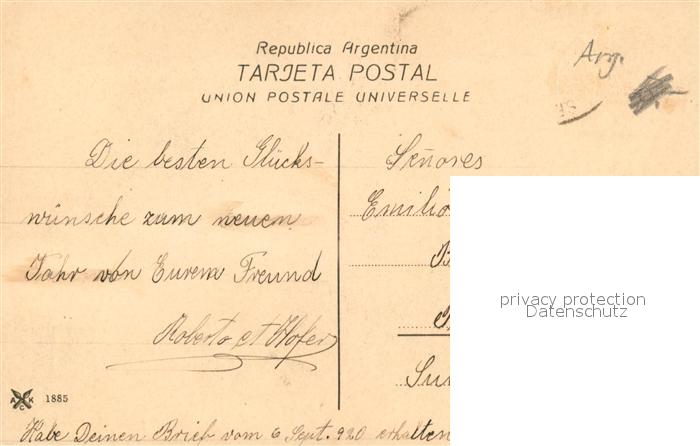 Republica Argentina
TARJETA POSTAL
UNION POSTALE UNIVERSELLE
Arg.
Die besten Glücks-
wünsche zum neuen
Jahr von Eurem Freund
Roberto A Hofer
Señores
Emilio
privacy protection
Datenschutz
A C K 1885
Habe Deinen Brief vom 6 Sept. 920 erhalten